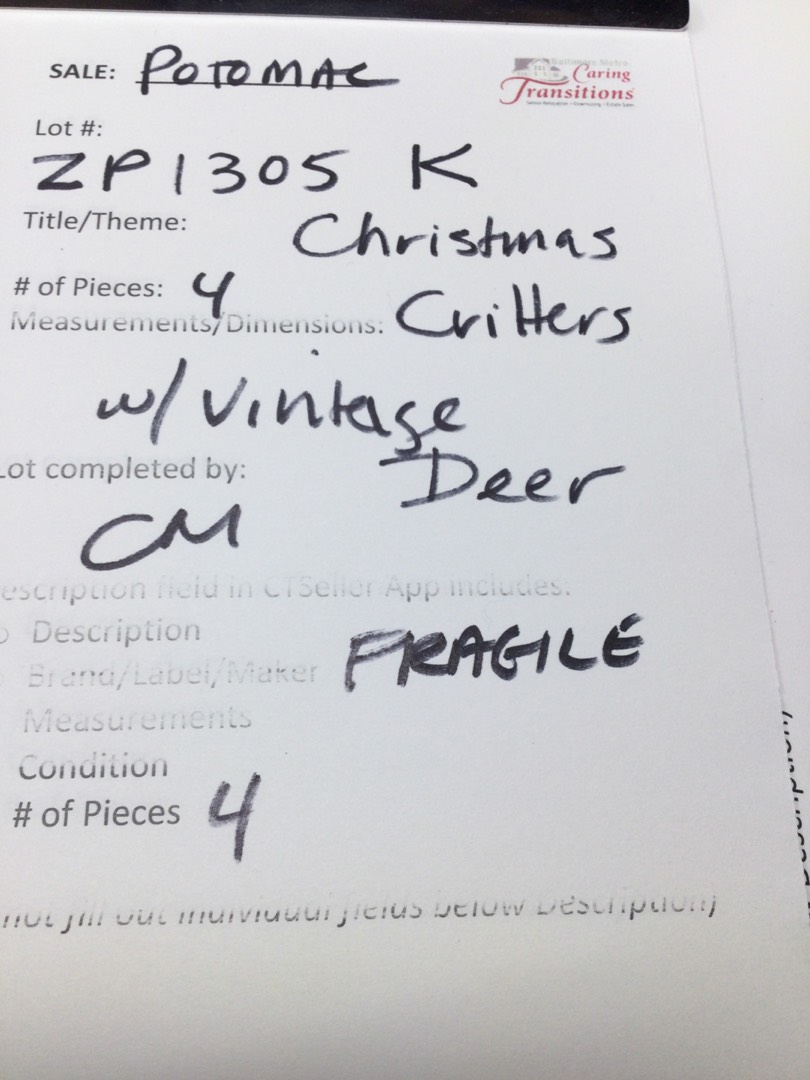 SALE: POTOMAC
Baltimore Metro
Caring
Transitions
Senior Relocation • Downsizing • Estate Sales
Lot #:
ZP1305 K
Title/Theme: Christmas
# of Pieces: 4
Measurements/Dimensions: Critters
w/ Vintage
Lot completed by: Deer
CM
escription field in CTSeller App includes:
Description
FRAGILE
Brand/Label/Maker
Measurements
Condition
# of Pieces 4
not fill out individual fields below Description)